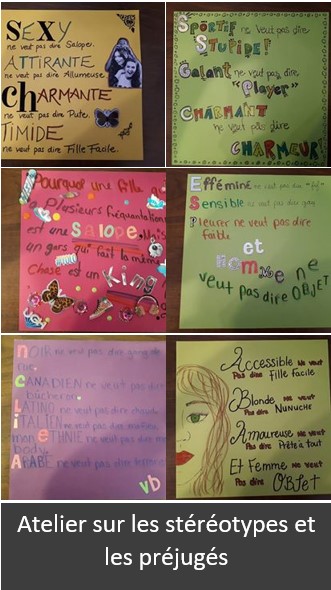 SEXY
ne veut pas dire Salope.
ATTIRANTE
ne veut pas dire Allumeuse
CHARMANTE
ne veut pas dire Pute.
TIMIDE
ne veut pas dire Fille Facile.
SPORTIF ne veut pas dire
STUPIDE!
Galant ne veut pas dire
"Player"
CHARMANT
ne veut pas dire
CHARMEUR!
Pourquoi une fille
a Plusieurs fréquentations
est une SALOPE,
un gars qui fait la même
Chose est un King
Efféminé ne veut pas dire
Sensible ne veut pas dire
Pleurer ne veut pas dire
faible
et
homme ne
veut pas dire OBJET
NOIR ne veut pas dire gang de
rue.
CANADIEN ne veut pas dire
bûcheron.
LATINO ne veut pas dire
ITALIEN ne veut pas dire
mon ETHNIE ne veut pas dire
body
ARABE ne veut pas dire
vb
Accessible Ne veut
Pas dire Fille facile
Blonde Ne veut
Pas dire Nunuche
Amoureuse Ne veut
Pas dire Prête à tout
Et Femme Ne veut
Pas dire OBJET
Atelier sur les stéréotypes et
les préjugés